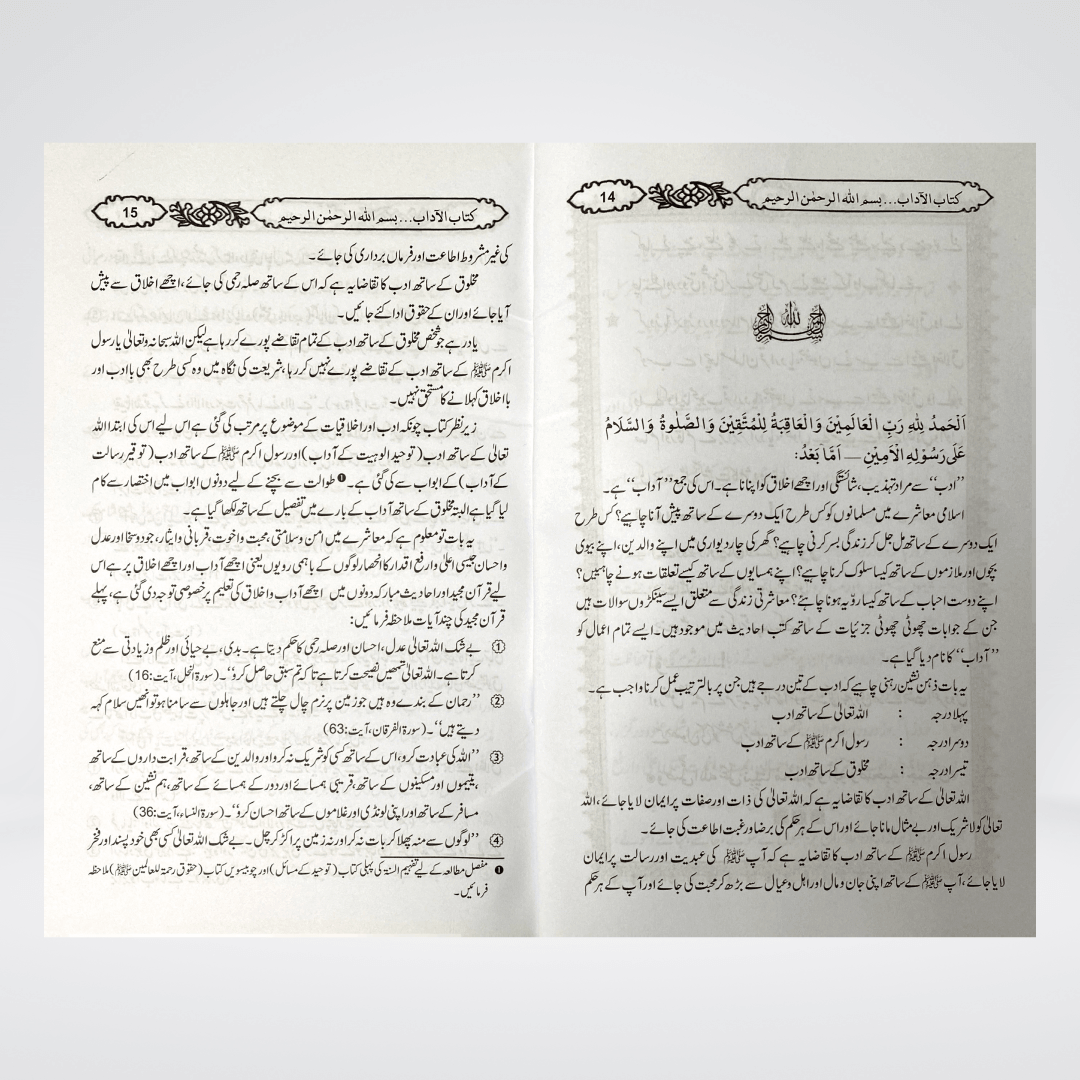 14
کتاب الآداب... بسم اللہ الرحمٰن الرحیم
بسم اللہ الرحمن الرحیم
اَلْحَمْدُ لِلّٰهِ رَبِّ الْعَالَمِيْنَ وَالْعَاقِبَةُ لِلْمُتَّقِيْنَ وَالصَّلٰوةُ وَالسَّلَامُ
عَلٰى رَسُوْلِهِ الْاَمِيْنِ — اَمَّا بَعْدُ:
’’ادب‘‘ سے مراد تہذیب، شائستگی اور اچھے اخلاق کو اپنانا ہے۔ اس کی جمع ’’آداب‘‘ ہے۔
اسلامی معاشرے میں مسلمانوں کو کس طرح ایک دوسرے کے ساتھ پیش آنا چاہیے؟ کس طرح
ایک دوسرے کے ساتھ مل جل کر زندگی بسر کرنی چاہیے؟ گھر کی چار دیواری میں اپنے والدین، اپنے بیوی
بچوں اور ملازموں کے ساتھ کیسا سلوک کرنا چاہیے؟ اپنے ہمسایوں کے ساتھ کیسے تعلقات ہونے چاہئیں؟
اپنے دوست احباب کے ساتھ کیسا رویّہ ہونا چاہئے؟ معاشرتی زندگی سے متعلق ایسے سینکڑوں سوالات ہیں
جن کے جوابات چھوٹی چھوٹی جزئیات کے ساتھ کتب احادیث میں موجود ہیں۔ ایسے تمام اعمال کو
’’آداب‘‘ کا نام دیا گیا ہے۔
یہ بات ذہن نشین رہنی چاہیے کہ ادب کے تین درجے ہیں جن پر بالترتیب عمل کرنا واجب ہے۔
پہلا درجہ : اللہ تعالیٰ کے ساتھ ادب
دوسرا درجہ : رسول اکرم ﷺ کے ساتھ ادب
تیسرا درجہ : مخلوق کے ساتھ ادب
اللہ تعالیٰ کے ساتھ ادب کا تقاضا یہ ہے کہ اللہ تعالیٰ کی ذات اور صفات پر ایمان لایا جائے، اللہ
تعالیٰ کو لاشریک اور بے مثال مانا جائے اور اس کے ہر حکم کی برضا ورغبت اطاعت کی جائے۔
رسول اکرم ﷺ کے ساتھ ادب کا تقاضا یہ ہے کہ آپ ﷺ کی عبدیت اور رسالت پر ایمان
لایا جائے، آپ ﷺ کے ساتھ اپنی جان و مال اور اہل و عیال سے بڑھ کر محبت کی جائے اور آپ کے ہر حکم
15
کتاب الآداب... بسم اللہ الرحمٰن الرحیم
کی غیر مشروط اطاعت اور فرماں برداری کی جائے۔
مخلوق کے ساتھ ادب کا تقاضا یہ ہے کہ اس کے ساتھ صلہ رحمی کی جائے، اچھے اخلاق سے پیش
آیا جائے اور ان کے حقوق ادا کئے جائیں۔
یاد رہے جو شخص مخلوق کے ساتھ ادب کے تمام تقاضے پورے کر رہا ہے لیکن اللہ سبحانہ وتعالیٰ یا رسول
اکرم ﷺ کے ساتھ ادب کے تقاضے پورے نہیں کر رہا، شریعت کی نگاہ میں وہ کسی طرح بھی باادب اور
بااخلاق کہلانے کا مستحق نہیں۔
زیر نظر کتاب چونکہ ادب اور اخلاقیات کے موضوع پر مرتب کی گئی ہے اس لیے اس کی ابتدا اللہ
تعالیٰ کے ساتھ ادب (توحید الوہیت کے آداب) اور رسول اکرم ﷺ کے ساتھ ادب (توقیر رسالت
کے آداب) کے ابواب سے کی گئی ہے۔ ❶ طوالت سے بچنے کے لیے دونوں ابواب میں اختصار سے کام
لیا گیا ہے البتہ مخلوق کے ساتھ آداب کے بارے میں تفصیل کے ساتھ لکھا گیا ہے۔
یہ بات تو معلوم ہے کہ معاشرے میں امن و سلامتی، محبت و اخوت، قربانی و ایثار، جود و سخا اور عدل
و احسان جیسی اعلیٰ و ارفع اقدار کا انحصار لوگوں کے باہمی رویوں یعنی اچھے آداب اور اچھے اخلاق پر ہے اس
لیے قرآن مجید اور احادیث مبارکہ دونوں میں اچھے آداب و اخلاق کی تعلیم پر خصوصی توجہ دی گئی ہے، پہلے
قرآن مجید کی چند آیات ملاحظہ فرمائیں:
① بے شک اللہ تعالیٰ عدل، احسان اور صلہ رحمی کا حکم دیتا ہے۔ بدی، بے حیائی اور ظلم و زیادتی سے منع
کرتا ہے۔ اللہ تعالیٰ تمھیں نصیحت کرتا ہے تاکہ تم سبق حاصل کرو‘‘۔ (سورۃ النحل، آیت:16)
② ’’رحمان کے بندے وہ ہیں جو زمین پر نرم چال چلتے ہیں اور جاہلوں سے سامنا ہو تو انھیں سلام کہہ
دیتے ہیں‘‘۔ (سورۃ الفرقان، آیت:63)
③ ’’اللہ کی عبادت کرو، اس کے ساتھ کسی کو شریک نہ کرو اور والدین کے ساتھ، قرابت داروں کے ساتھ
،یتیموں اور مسکینوں کے ساتھ، قریبی ہمسائے اور دور کے ہمسائے کے ساتھ، ہم نشین کے ساتھ،
مسافر کے ساتھ اور اپنی لونڈی اور غلاموں کے ساتھ احسان کرو‘‘۔ (سورۃ النساء، آیت:36)
④ ’’لوگوں سے منہ پھلا کر بات نہ کر اور نہ زمین پر اکڑ کر چل۔ بے شک اللہ تعالیٰ کسی بھی خود پسند اور فخر
❶ مفصل مطالعہ کے لیے تفہیم السنۃ کی پہلی کتاب (توحید کے مسائل) اور چوبیسویں کتاب (حقوق رحمۃ للعالمین ﷺ) ملاحظہ
فرمائیں۔